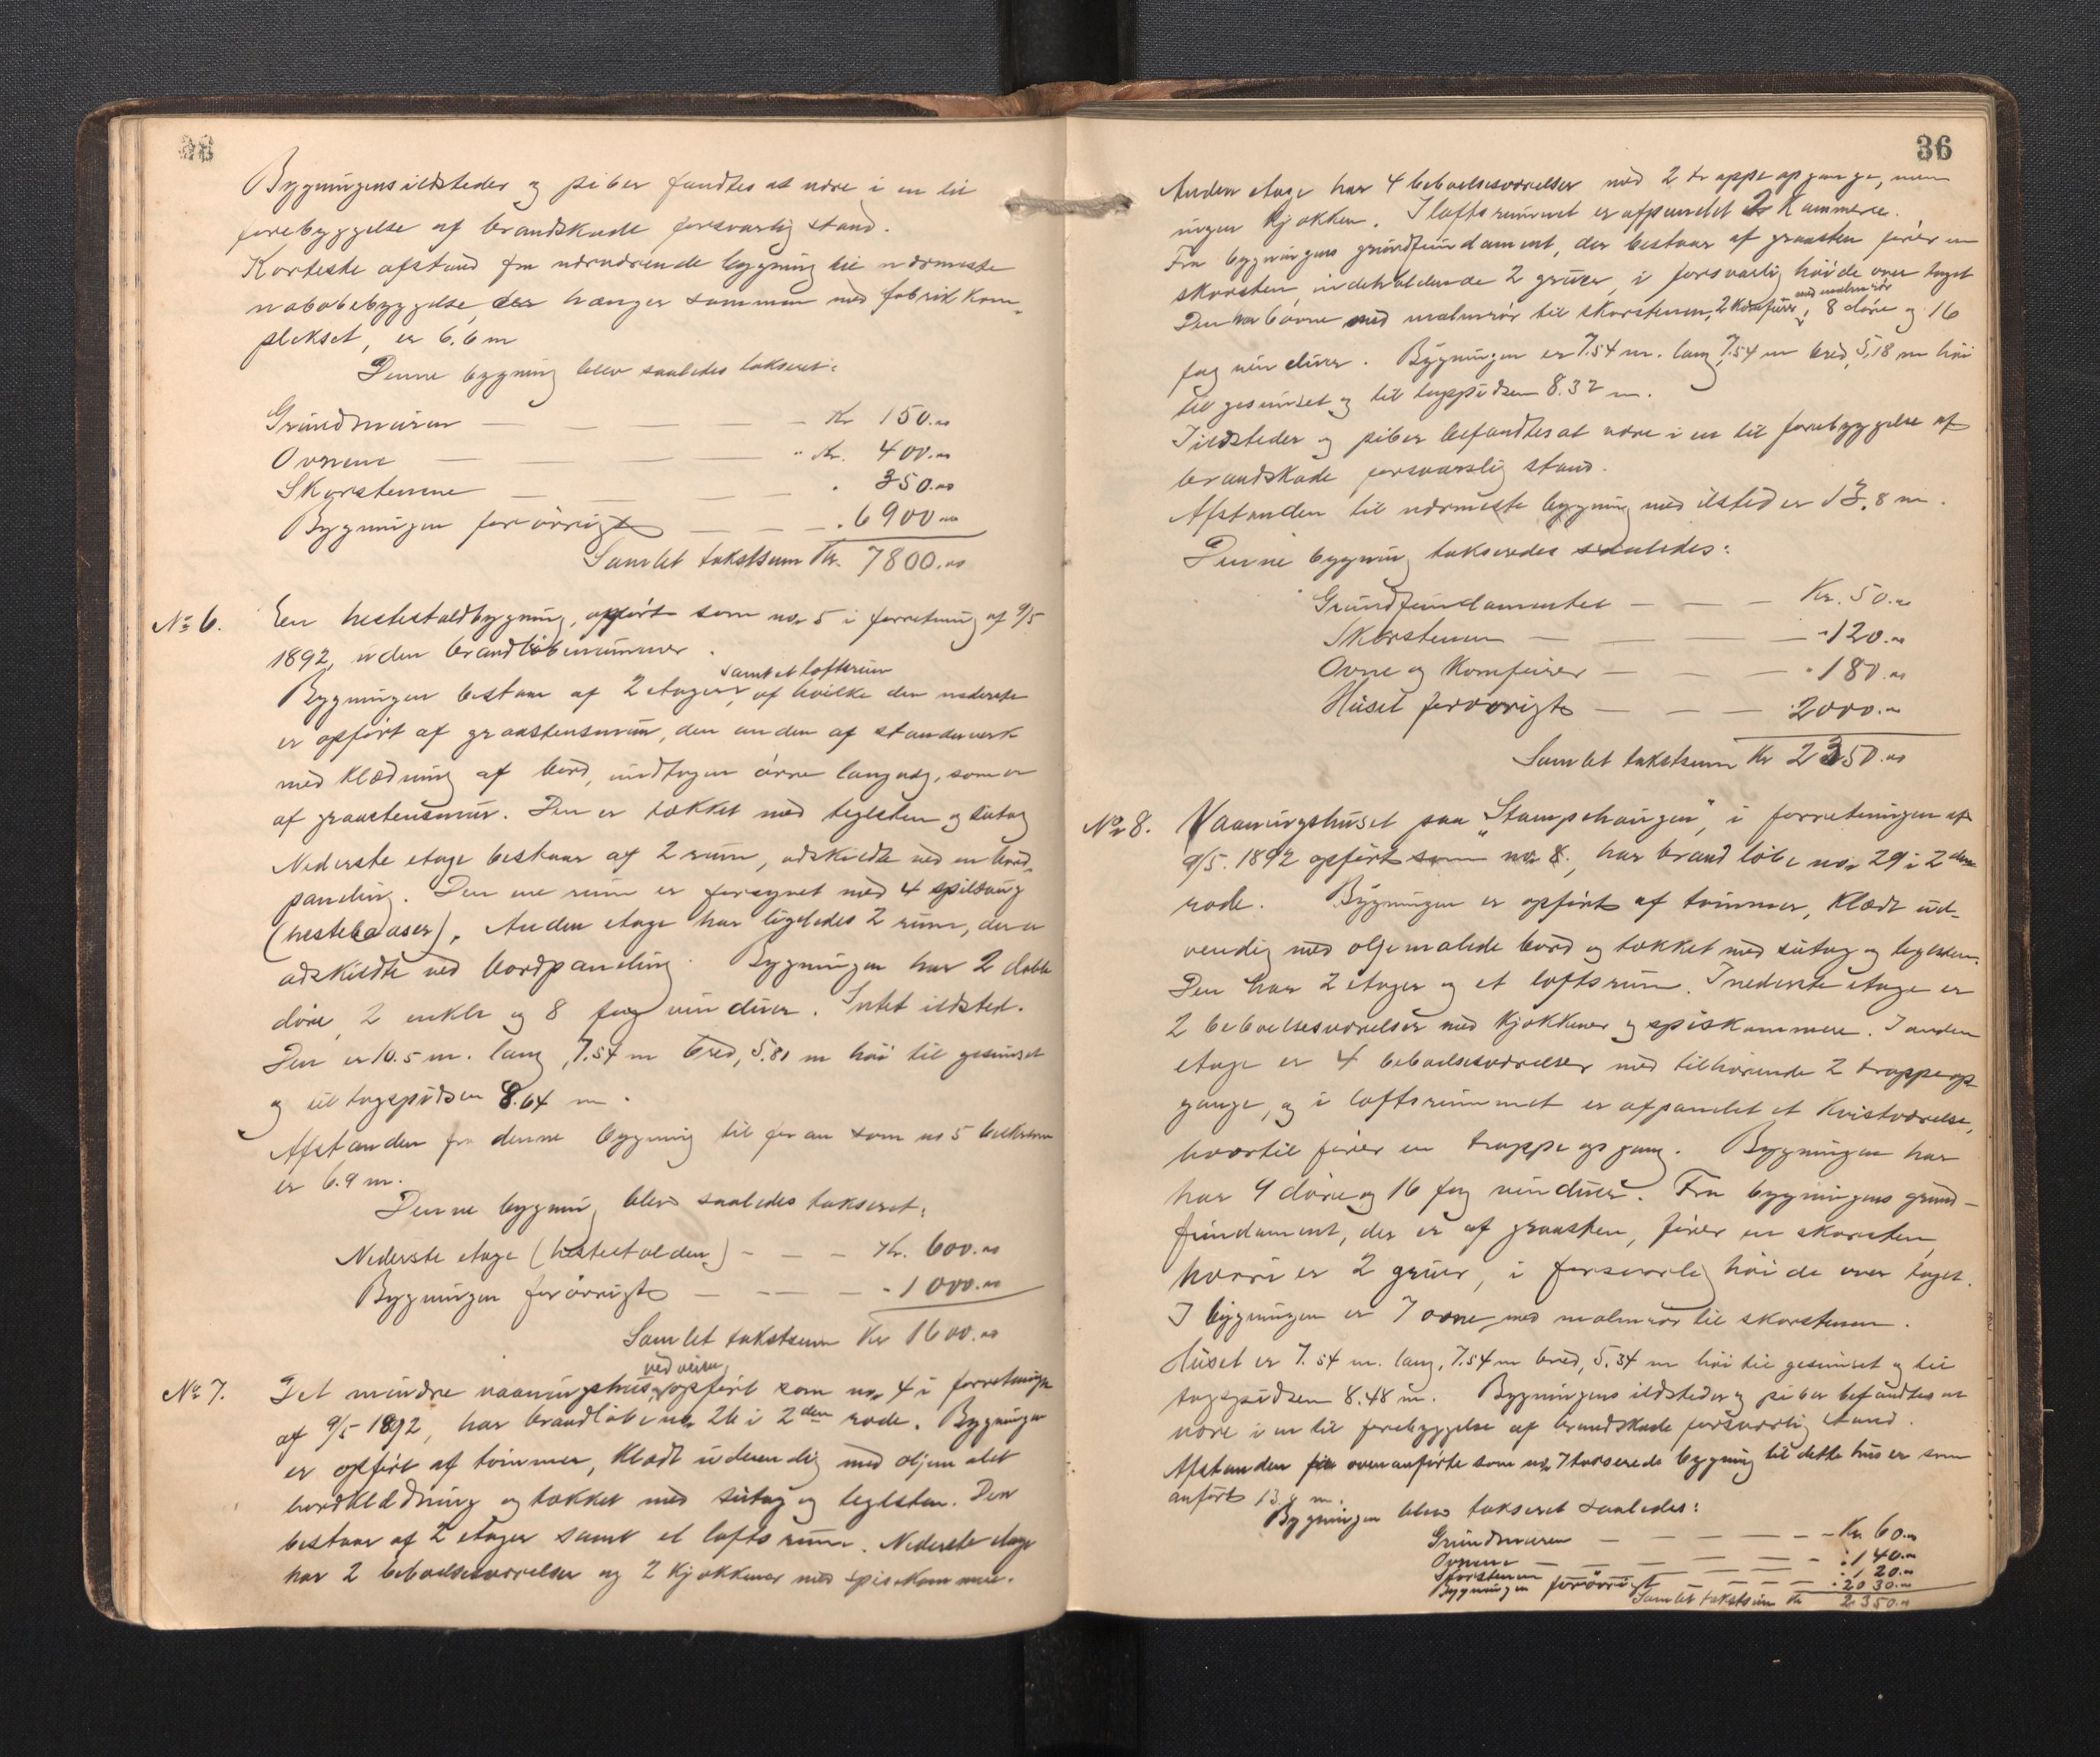 Bygningens ildsteder og piber fandtes at være i en til
forebyggelse af brandskade forsvarlig stand.
Korteste afstand fra nærværende bygning til nærmeste
nabobebyggelse, der hænger sammen med fabrikkom-
plekset, er 6,6 m
Denne bygning blev saaledes takseret:
Grundmuren — — — — Kr 150.00
Ovnene — — — Kr. 400.00
Skorstenene — — — 350.00
Bygningen forøvrigt — — — 6900.00
Samlet takstsum Kr. 7800.00
No 6. En hestestaldbygning, opført som no. 5 i forretning af 9/5
1892, uden brandløbenummer.
Bygningen bestaar af 2 etager, samt et loftsrum af hvilke den nederste
er opført af graastensmur, den anden af standerverk
med klædning af bord, undtagen øvre langvæg, som er
af graastensmur. Den er tækket med teglsten og sutag
Nederste etage bestaar af 2 rum, adskildte ved en bord-
paneling. Den ene rum er forsynet med 4 spiltaug
(hestebaaser). Anden etage har ligeledes 2 rum, der er
adskildte ved bordpaneling. Bygningen har 2 doble
døre, 2 enkle og 8 fag vinduer. Intet ildsted.
Den er 10.5 m. lang, 7.54 m bred, 5.81 m høi til gesimset
og til tagspidsen 8.64 m.
Afstanden fra denne bygning til foran som no 5
er 6.9 m.
Denne bygning blev saaledes takseret:
Nederste etage (hestestalden) — — — Kr. 600.00
Bygningen forøvrigt — — — - 1000.00
Samlet takstsum Kr 1600.00
No 7. Det mindre vaaningshus ved veien, opført som no. 4 i forretningen
af 9/5 1892, har brandløbe no. 26 i 2den rode. Bygningen
er opført af tømmer, klædt udvendig med oljemalet
bordklædning og tækket med sutag og teglsten. Den
bestaar af 2 etager samt et loftsrum. Nederste etage
har 2 beboelsesværelser og 2 kjøkkener med spiskammere.
36
Anden etage har 4 beboelsesværelser med 2 trappeopgange, men
ingen kjøkken. I loftsrummet er afpanelet 2 kammere.
Fra bygningens grundfundament, der bestaar af graasten fører en
skorsten indeholdende 2 gruer, i forsvarlig høide over taget
Den har 6 ovne med malmrør til skorstenen, 2 komfurer med malmrør, 8 døre og 16
fag vinduer. Bygningen er 7.54 m. lang, 7.54 m bred, 5,18 m høi
til gesimset og til tagspidsen 8.32 m.
Ildsteder og piber befandtes at være i en til forebyggelse af
brandskade forsvarslig stand.
Afstanden til nærmeste bygning med ildsted er 13.8 m.
Denne bygning takseredes saaledes:
Grundfundamentet — — — Kr. 50.00
Skorstenen — — — - 120.00
Ovne og Komfurer — — — - 180.00
Huset forøvrigt — — — 2000.00
Samlet takstsum Kr 2350.00
No 8. Vaaningshuset paa "Stampehaugen", i forretningen af
9/5. 1892 opført som no. 8., har brandløbe no. 29 i 2den
rode. Bygningen er opført af tømmer, klædt ud-
vendig med oljemalede bord og tækket med sutag og teglsten.
Den har 2 etager og et loftsrum. I nederste etage er
2 beboelsesværelser med kjøkkener og spiskammere. I anden
etage er 4 beboelsesværelser med tilhørende 2 trappeop-
gange, og i loftsrummet er afpanelet et kvistværelse,
hvortil fører en trappeopgang. Bygningen har
har 9 døre og 16 fag vinduer. Fra bygningens grund-
fundament, der er af graasten, fører en skorsten,
hvori er 2 gruer, i forsvarlig høide over taget.
I bygningen er 7 ovne, med malmrør til skorstenen.
Huset er 7.54 m. lang, 7.54 m bred, 5.34 m høi til gesimset og til
tagspidsen 8.48 m. Bygningens ildsteder og piber befandtes at
være i en til forebyggelse af brandskade forsvarlig stand.
Afstanden fra ovenanførte som no. 7 takserede bygning til dette hus er som
anført 13.8 m.
Bygningen blev takseret saaledes:
Grundmuren — — — — Kr 60.00
Ovnene — — — — - 140.00
Skorstenen — — — - 120.00
Bygningen forøvrigt — — — - 2030.00
Samlet takstsum Kr 2350.00